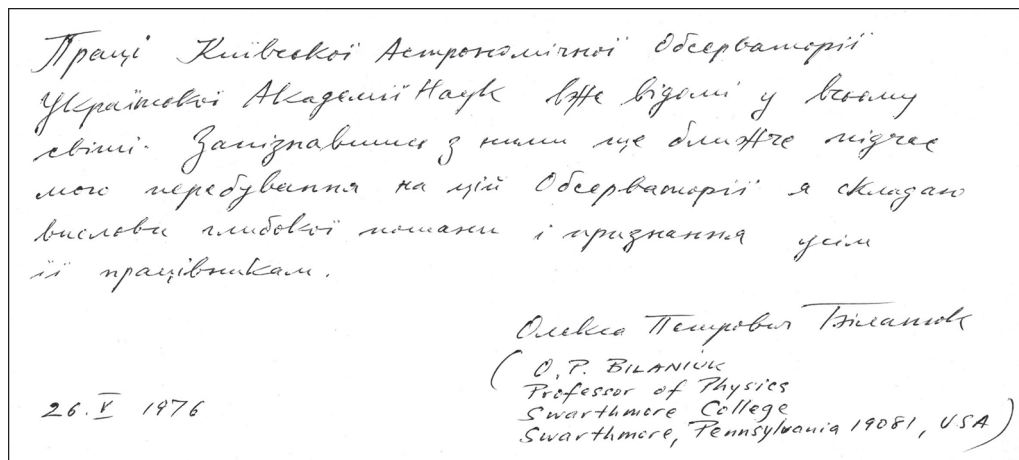 Праці Київської Астрономічної Обсерваторії
Української Академії Наук вже відомі у всьому
світі. Запізнавшись з ними ще ближче підчас
мого перебування на цій Обсерваторії я складаю
вислови глибокої пошани і признання усім
її працівникам.
Олекса Петрович Біланюк
( O. P. BILANIUK
Professor of Physics
Swarthmore College
Swarthmore, Pennsylvania 19081, USA )
26. V 1976